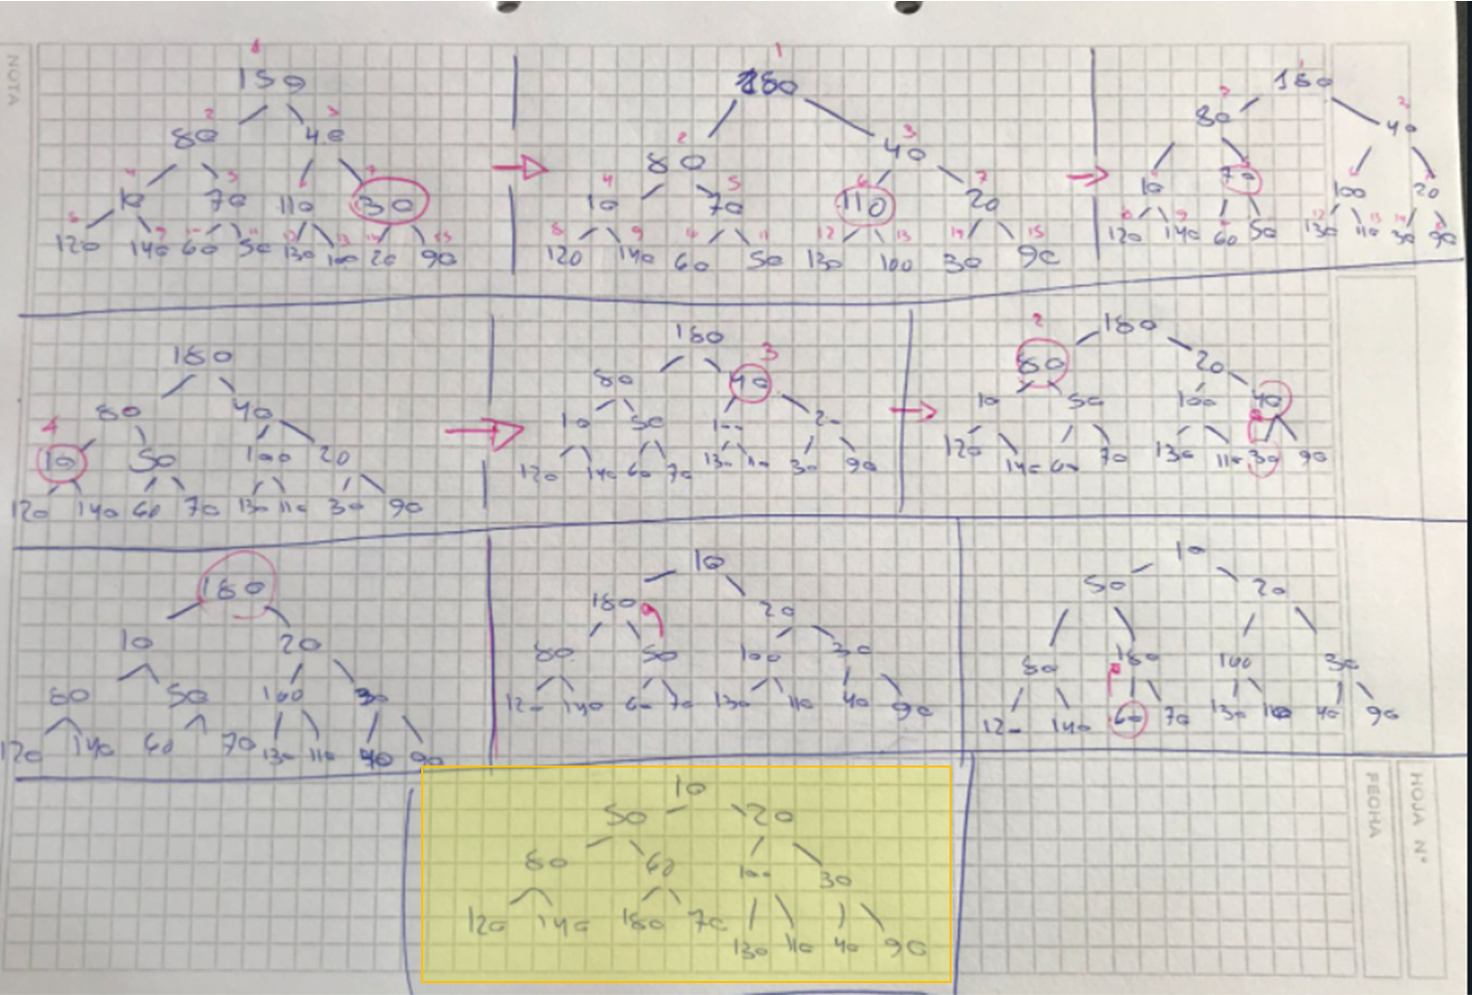 NOTA
1
150
2 3
80 40
4 5 6 7
10 70 110 30
8 9 10 11 12 13 14 15
120 140 60 50 130 100 20 90
1
180
2 3
80 40
4 5 6 7
10 70 110 20
8 9 11 12 13 14 15
120 140 60 50 130 100 30 90
1
180
80 40
10 70 100 20
120 140 60 50 130 110 30 90
180
80 40
4
10 50 100 20
120 140 60 70 130 110 30 90
180
3
80 40
10 50 100 20
120 140 60 70 130 110 30 90
2
180
80 20
10 50 100 40
120 140 60 70 130 110 30 90
180
10 20
80 50 100 30
120 140 60 70 130 110 40 90
10
180 20
80 50 100 30
120 140 60 70 130 110 40 90
10
50 20
80 180 100 30
120 140 60 70 130 110 40 90
10
50 20
80 60 100 30
120 140 180 70 130 110 40 90
FECHA
HOJA Nº